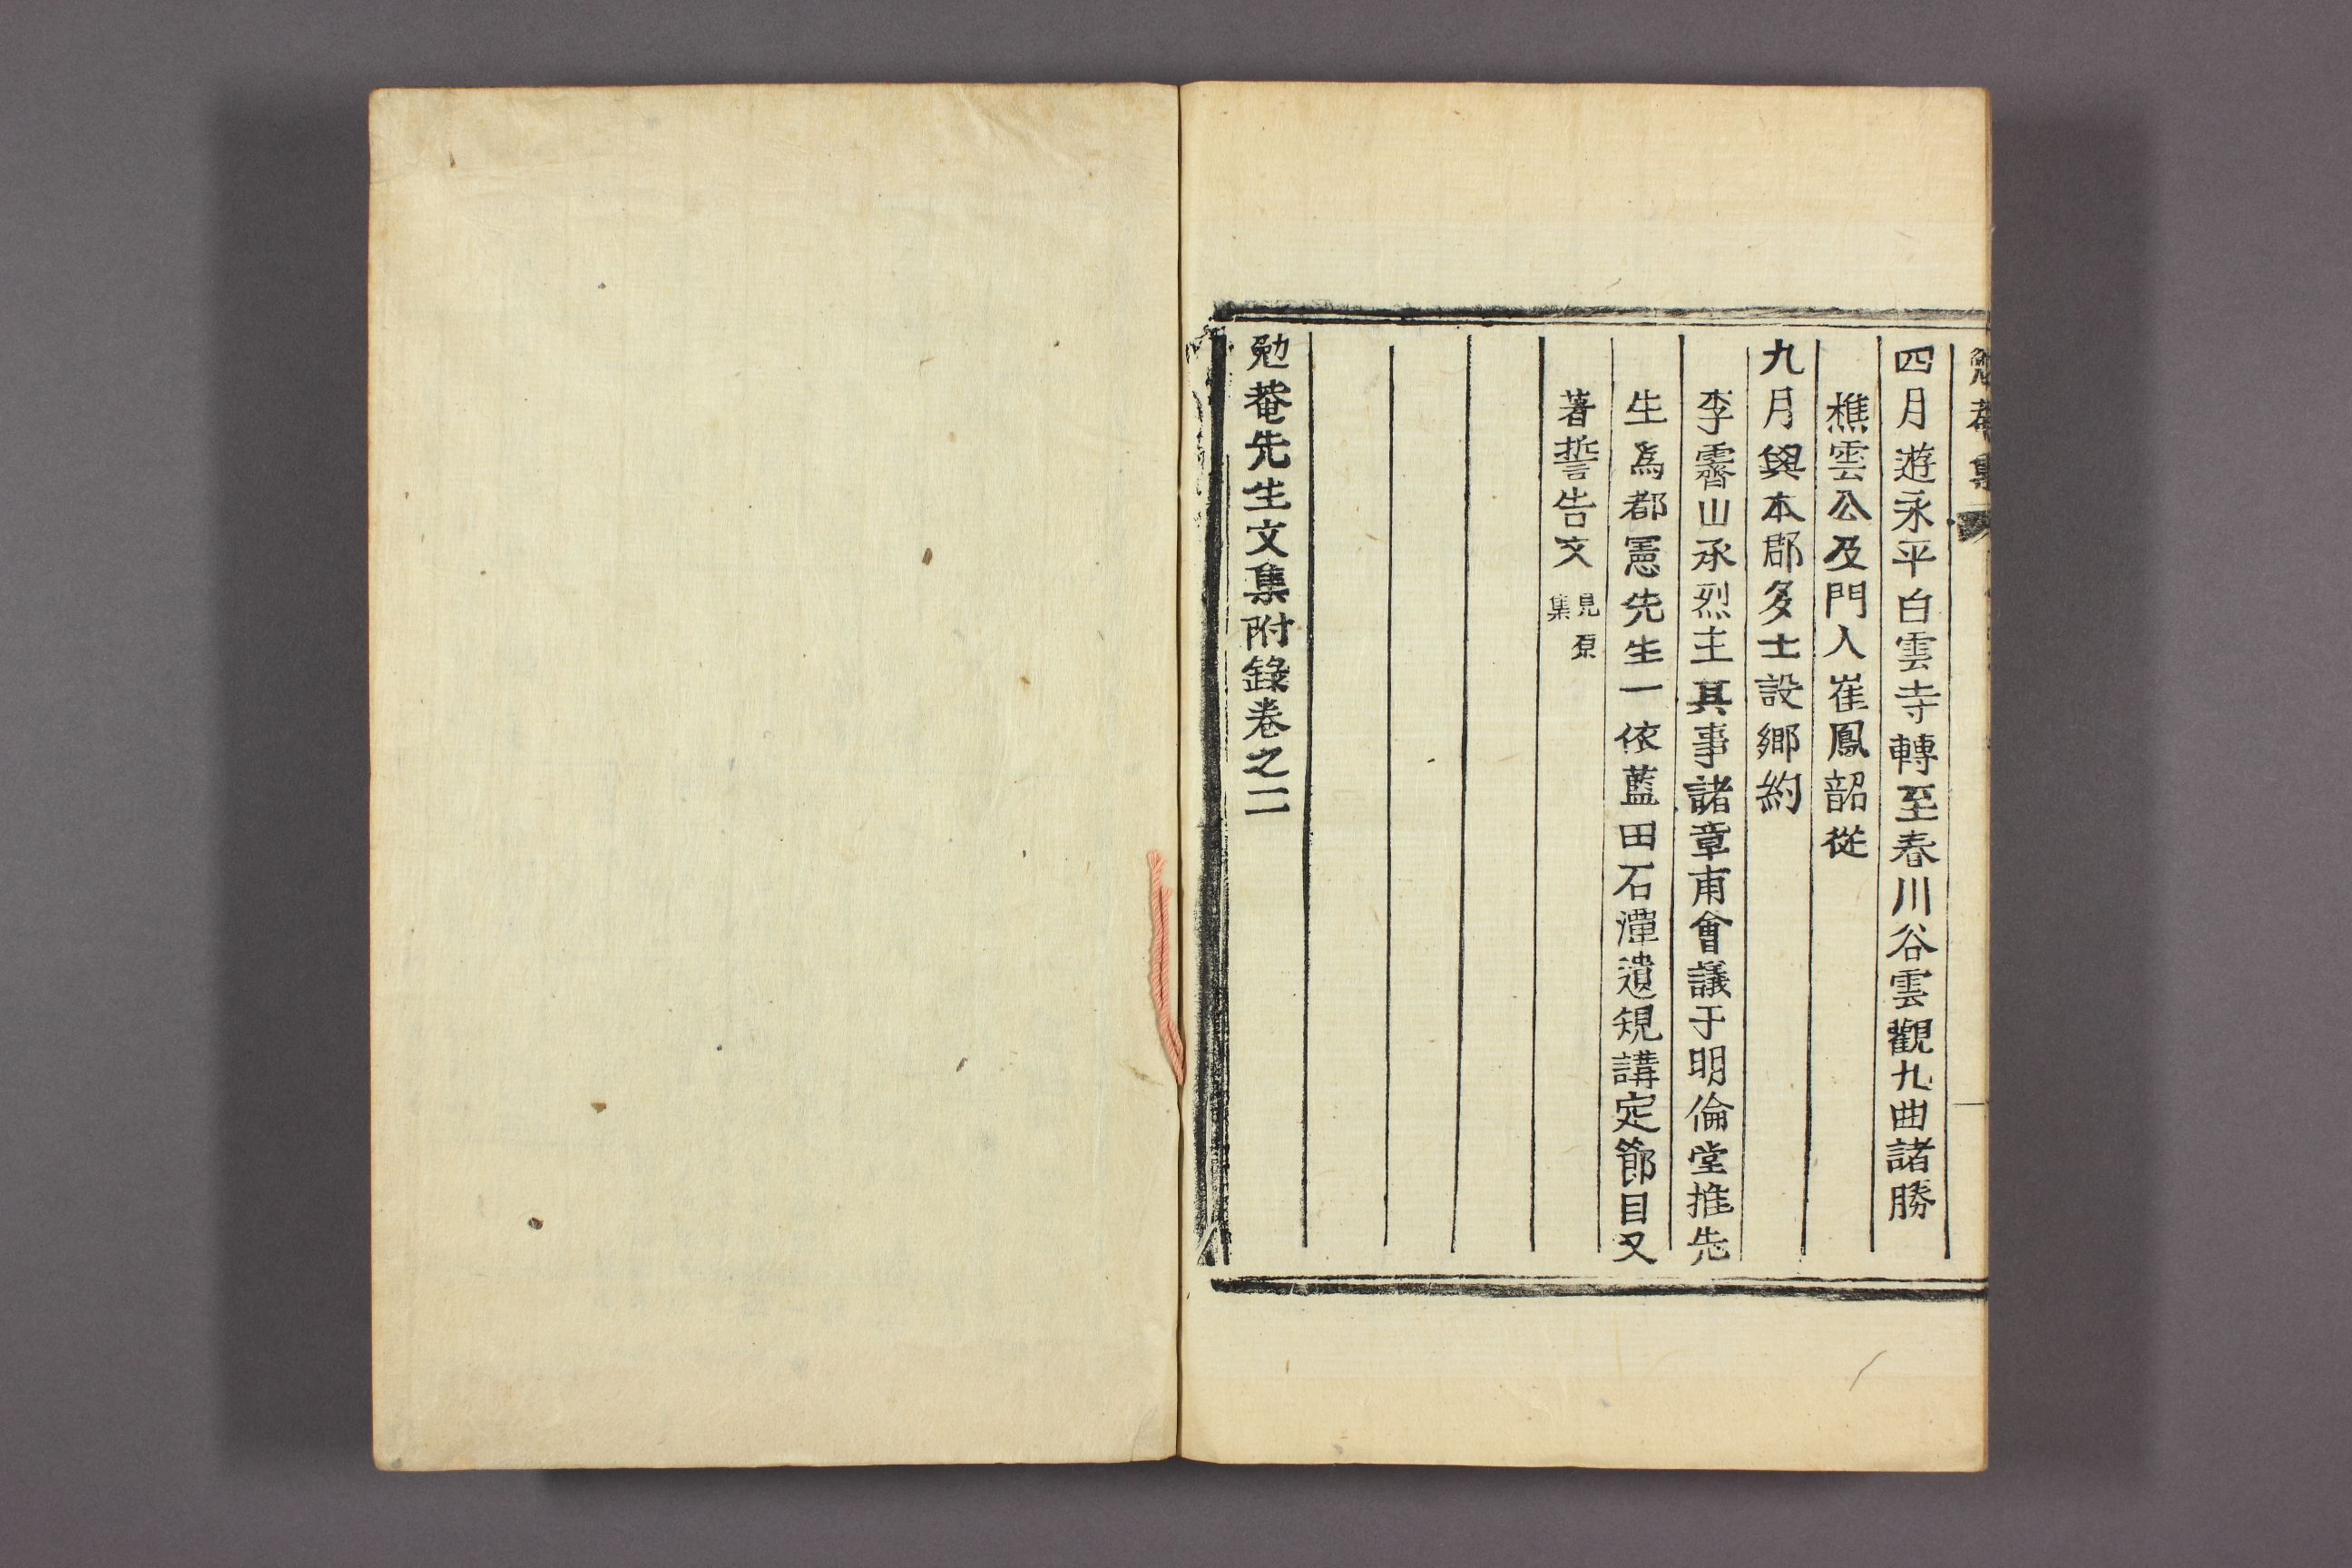 勉菴集
四月遊永平白雲寺轉至春川谷雲觀九曲諸勝
樵雲公及門人崔鳳韶從
九月與本郡多士設鄉約
李霽山承烈主其事諸章甫會議于明倫堂推先
生爲都憲先生一依藍田石潭遺規講定節目又
著誓告文見原集
勉菴先生文集附錄卷之二